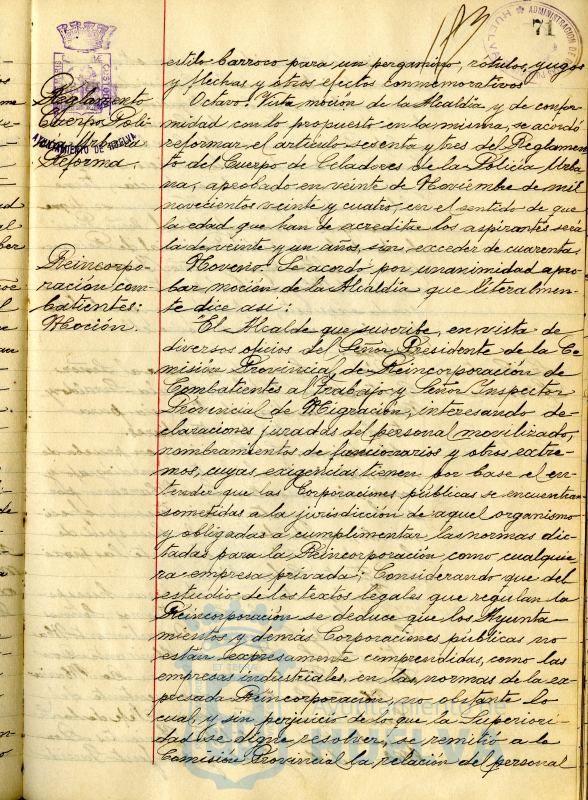 173
71
ADMINISTRACION DE
HUELVA
AYUNTAMIENTO DE HUELVA
estilo barroco para un pergamino, rótulos, yugos
y flechas y otros efectos conmemorativos
Reglamento
Cuerpo Poli-
Urbana
Reforma.
Octavo. Vista moción de la Alcaldía y de confor-
midad con lo propuesto en la misma, se acordó
reformar el artículo sesenta y tres del Reglamen-
to del Cuerpo de Celadores de la Policía Urba-
na, aprobado en veinte de Noviembre de mil
novecientos veinte y cuatro, en el sentido de que
la edad que han de acreditar los aspirantes será
la de veinte y un años, sin exceder de cuarenta
Reincorpo-
ración com-
batientes:
Moción.
Noveno. Se acordó por unanimidad apro-
bar moción de la Alcaldía que literalmen-
te dice así:
"El Alcalde que suscribe, en vista de
diversos oficios del Señor Presidente de la Co-
misión Provincial de Reincorporación de
Combatientes al Trabajo y Señor Inspector
Provincial de Migración, interesando de-
claraciones juradas del personal movilizado,
nombramientos de funcionarios y otros extre-
mos, cuyas exigencias tienen por base el en-
tender que las Corporaciones públicas se encuentran
sometidas a la jurisdicción de aquel organismo
y obligadas a cumplimentar las normas dic-
tadas para la Reincorporación como cualquie-
ra empresa privada; Considerando que del
estudio de los textos legales que regulan la
Reincorporación se deduce que los Ayunta-
mientos y demás Corporaciones públicas no
están expresamente comprendidas, como las
empresas industriales, en las normas de la ex-
presada Reincorporación, no obstante lo
cual, y sin perjuicio de lo que la Superiori-
dad se digne resolver, se remitió a la
Comisión Provincial la relación del personal
Ayuntamiento de
HUELVA